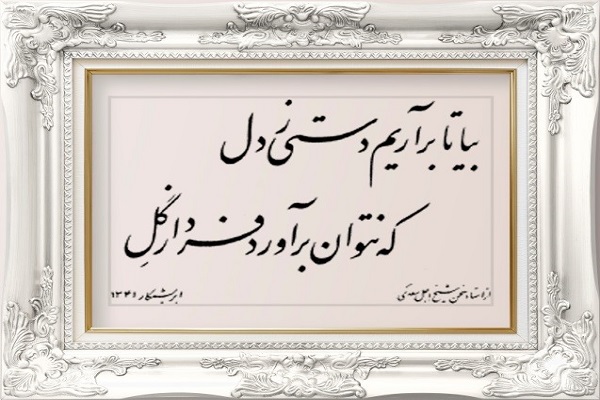 بیا تا برآریم دستی ز دل
که نتوان برآورد فردا ز گِل
از استاد سخن شیخ اجل سعدی
ابریشمکار ۱۳۴۱